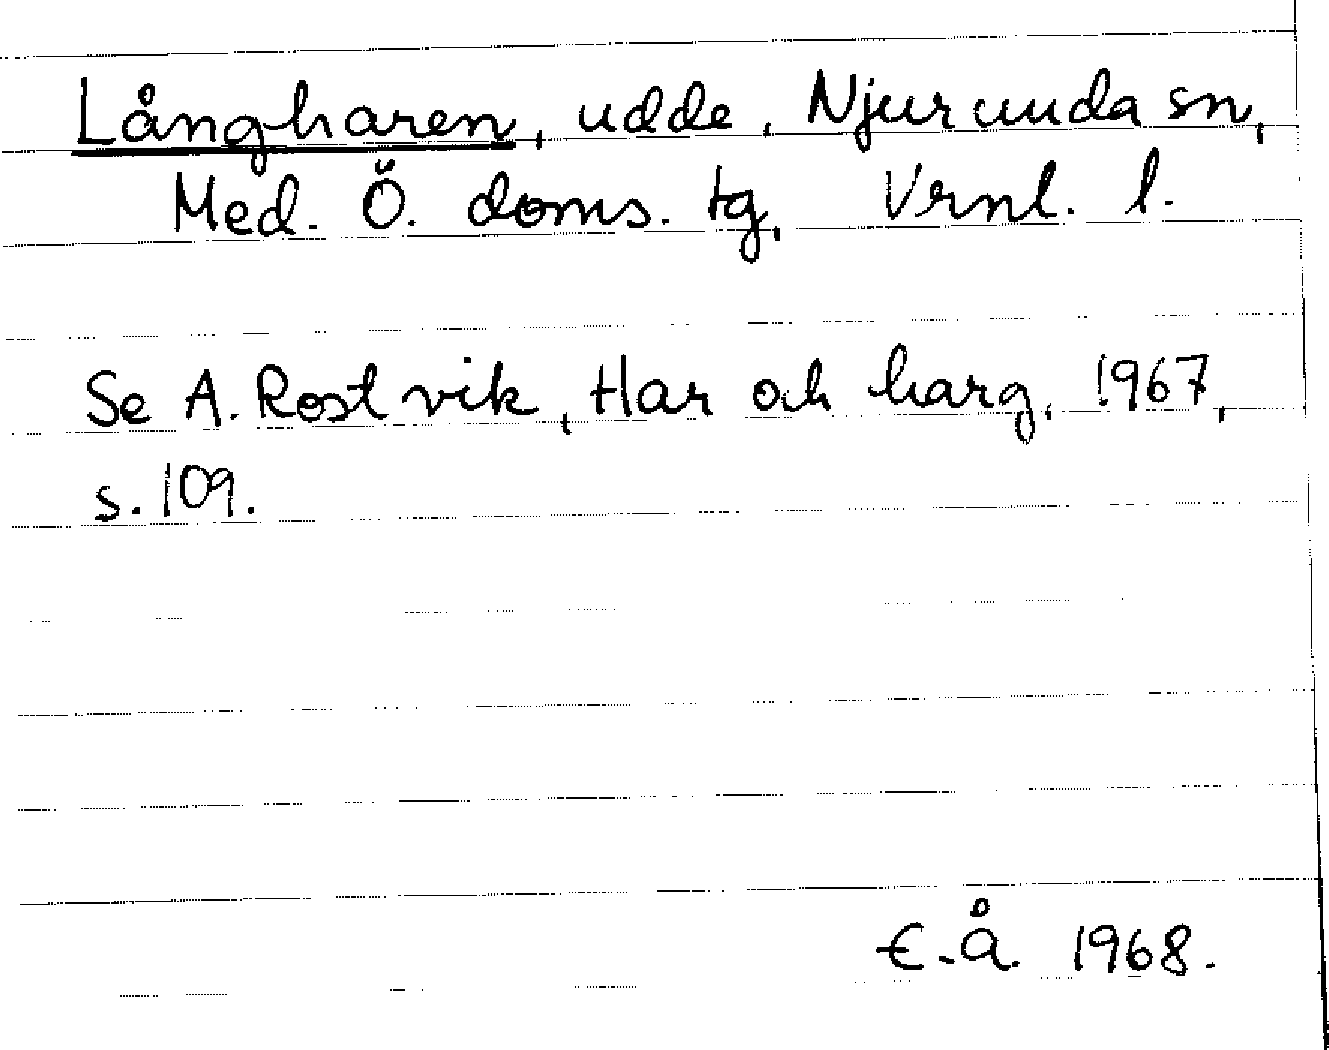 Långharen, udde, Njurunda sn,
Med. Ö. doms. tg, Vrnl. l.
Se A. Rostvik, Har och harg, 1967,
s. 109.
E. Å. 1968.